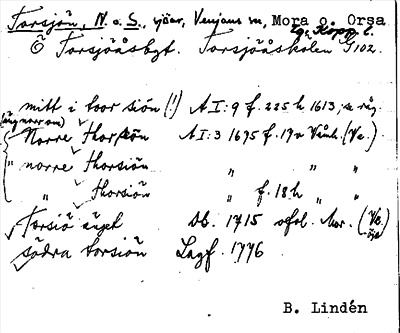 Torsjön, N. o. S., sjöar, Venjans sn, Mora o. Orsa
tgs Kopp. l.
Ö Torsjöåsbgt. Torsjöåskolen G102.
mitt i toor siön (!) A I: 9 f. 225 h 1613, se råg.
(äng norr om)
Norre thorsön A I: 3 1695 f. 19v Vänh. (Ve.)
" norre thorsiön " " "
" thorsiön " f. 18 h " "
Torsiö änget Db. 1715 ofol. Mor. (Ve.
södra torsiön Lagf. 1776
B. Lindén